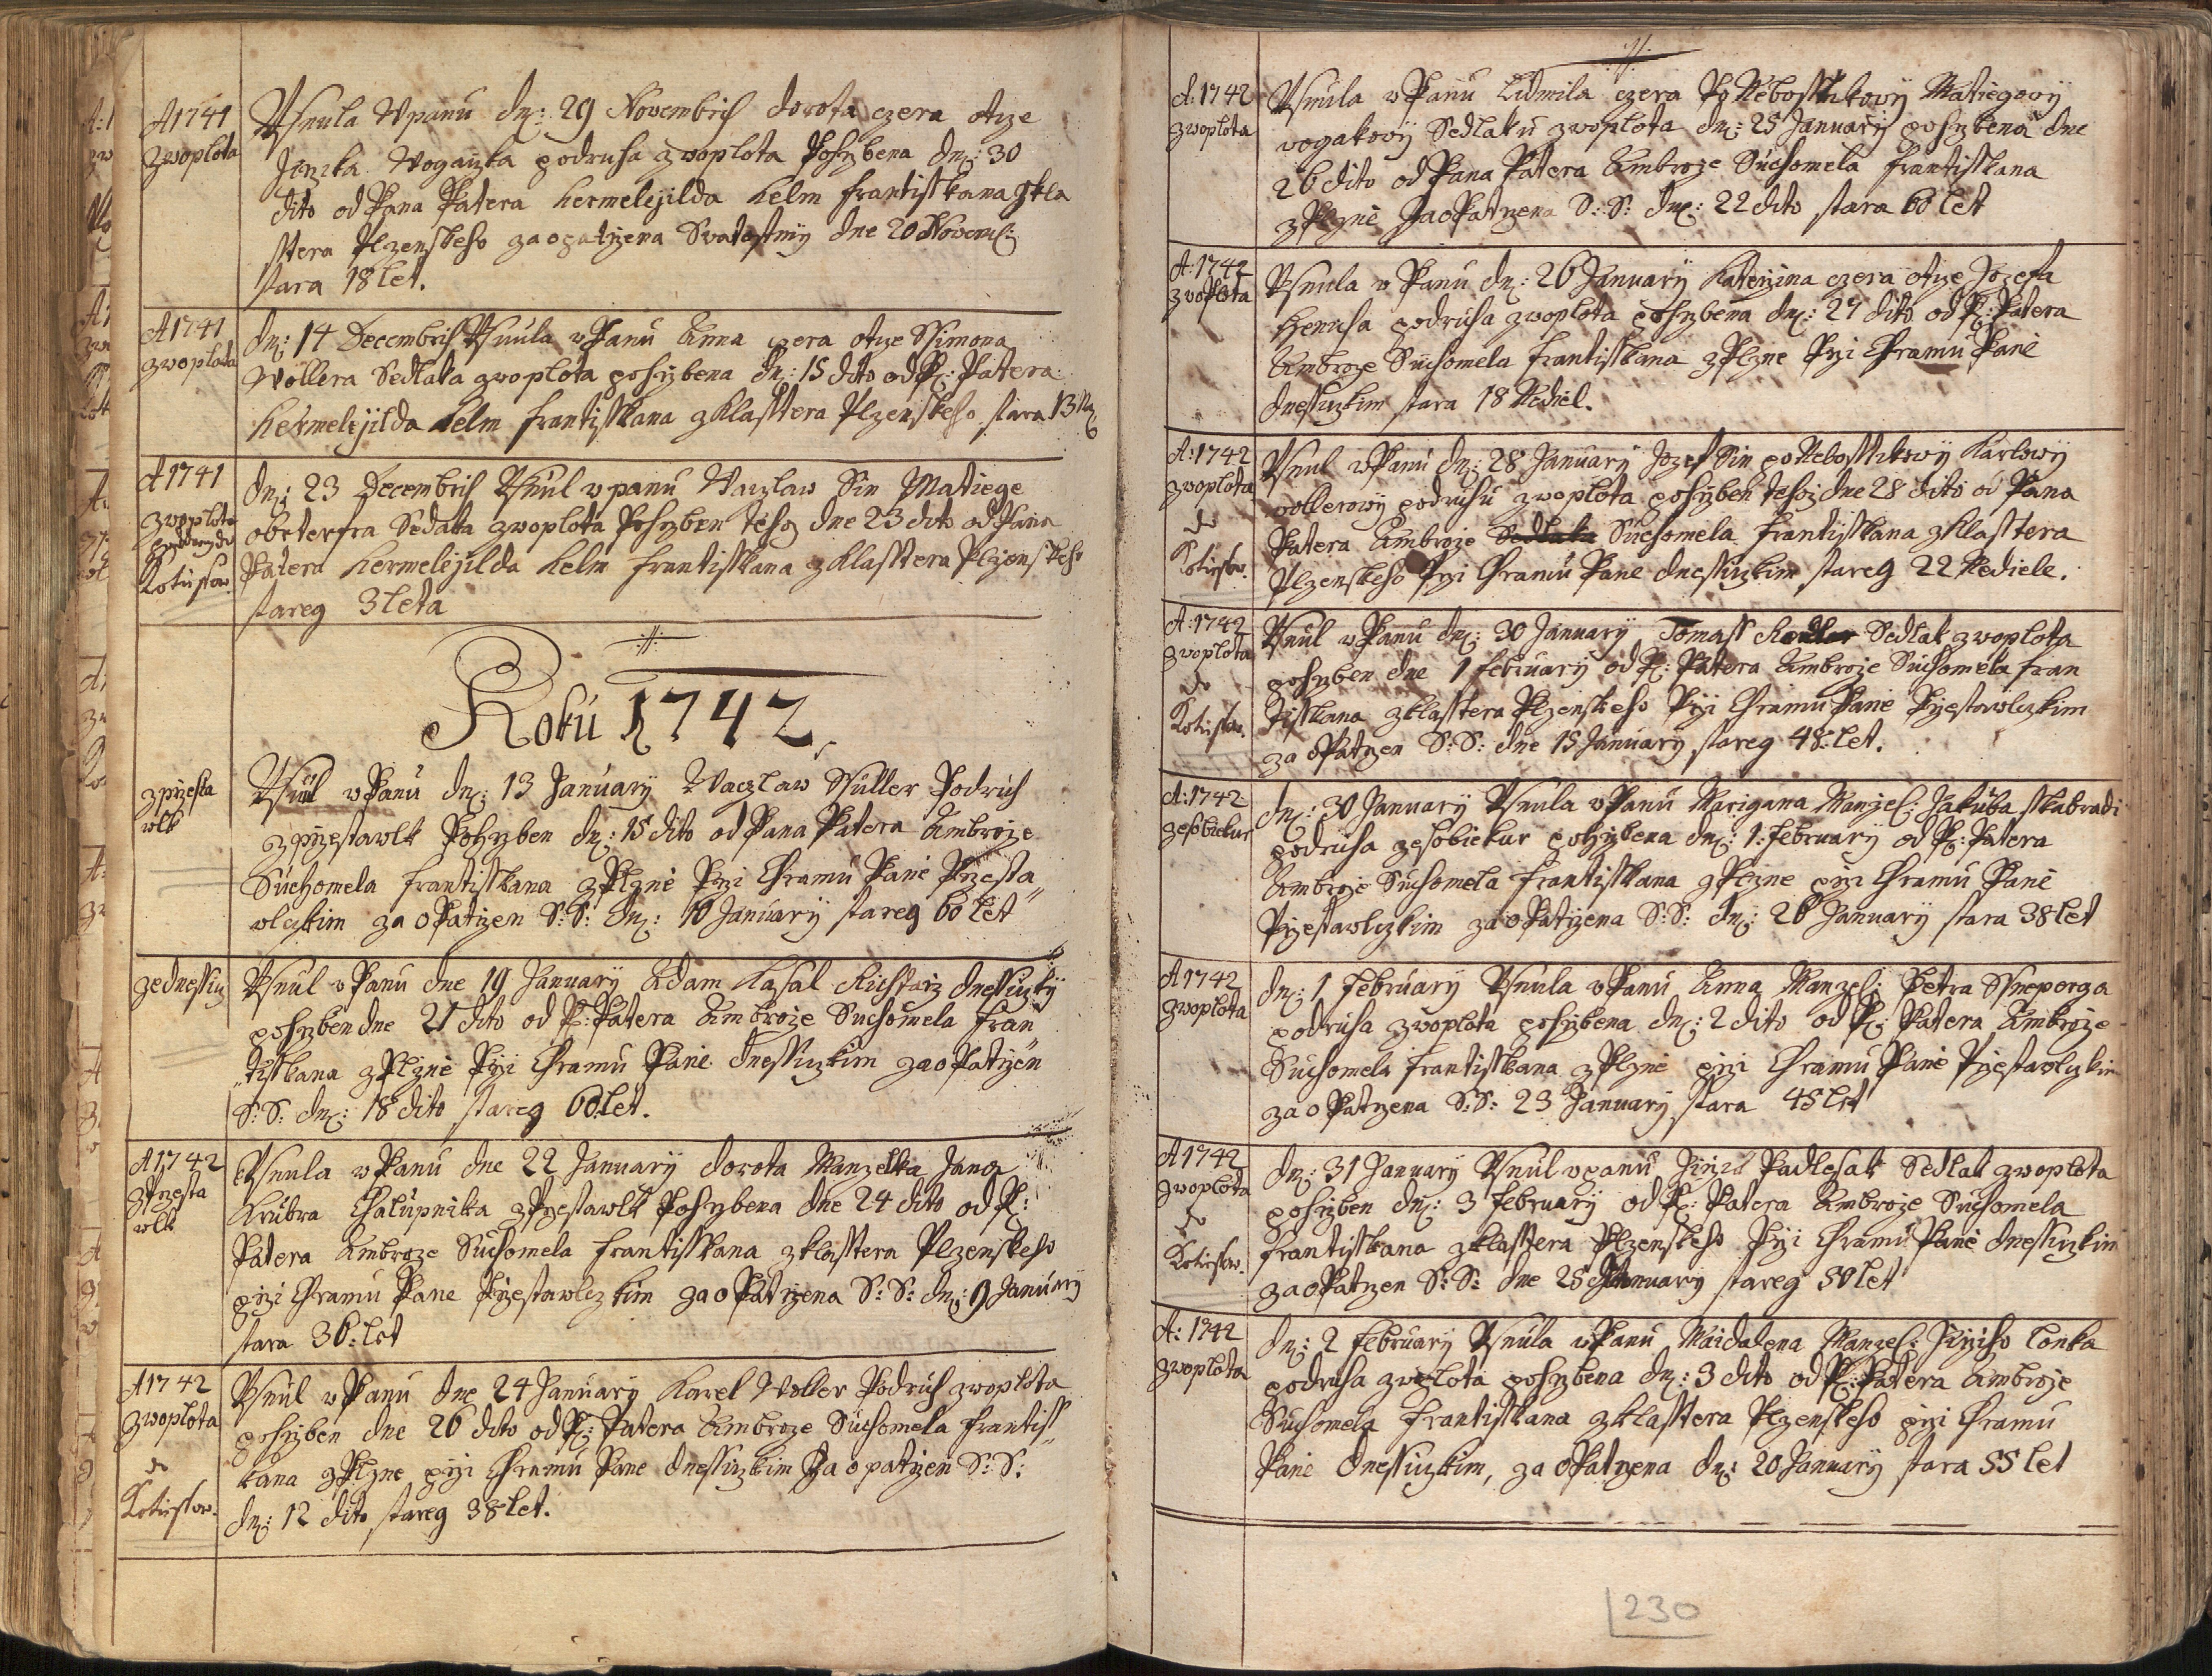 A 1741
zwoplota
Vsnula Vpanu dn: 29 Novembris dorota czera otcze
Jirzika Wogaczka podruha zwoplota Pohrzbena dn: 30
dito od Pana Patera Hermelejilda Helm frantisskana zkla
sstera Plzenskeho zaopatrzena Svatostmij dne 20 Novem:
stara 18 let.
A 1741
zwoplota
dn: 14 Decembris Vsnula w Panu Anna czera otcze Ssimona
Wollera Sedlaka zwoplota pohrzbena dn: 15 dito od P: Patera
Hermelejilda Helm frantisskana zKlasstera Plzenskeho stara 13
A 1741
zwoplota
do
Kotiessow.
dn: 23 Decembris Vsnul w panu Waczlaw Sin Matiege
Sedlaka zwoplota Pohrzben tehoz dne 23 dito od Pana
Patera Hermelejilda Helm frantisskana z Klasstera Plzenskeho
stareg 3 leta
Roku 1742.
zprzesta
wlk
Vsnul w Panu dn: 13 January Waczlaw Ssuller Podruh
zprzestawlk Pohrzben dn: 15 dito od Pana Patera Ambroze
Suchomela frantisskana z Plzne Przi Chramu Pane Przesta
wlczkim za o Patrzen S: S: dn: 10 January stareg 60 let
zednessicz
Vsnul w Panu dne 19 January Adam Kasal Richtarz dnessiczky
pohrzben dne 21 dito od P: Patera Ambroze Suchomela fran
tisskana z Plzne Przi Chramu Pane dnessiczkim zaoPatrzen
S: S: dn: 18 dito stareg 60 let.
A 1742
zPrzesta
wlk
Vsnula w Panu dne 22 January dorota Manzelka Jana
Krubra Chalupnika zPrzestawlk Pohrzbena dne 24 dito od P:
Patera Ambroze Suchomela frantisskana zklasstera Plzenskeho
przi Chramu Pane Przestawlczkim zaoPatrzena S: S: dn: 9 January
stara 36: let
A 1742
zwoplota
do
Kotiessow.
Vsnul w Panu dne 24 January Karel Woller Podruh zwoplota
pohrzben dne 26 dito od P: Patera Ambroze Suchomela frantiss
kana z Plzne przi Chramu Pane dnessiczkim Za opatrzen S: S:
dn: 12 dito stareg 38 let.
A: 1742
zwoplota
Vsnula w Panu Lidmila czera Po Nebossztikowy Matiegowy
wogakowy Sedlaku zwoplota dn: 25 January pohrzbena dne
26 dito od Pana Patera Ambroze Suchomela frantisskana
z Plzne ZaoPatrzena S: S: dn: 22 dito stara 60 let
A: 1742
zwoplota
Vsnula w Panu dn: 26 January Katerzina czera otcze Jozefa
Henicha podruha zwoplota pohrzbena dn: 27 dito od P: Patera
Ambroze Suchomela frantisskana z Plzne Przi Chramu Pane
dnessiczkim stara 18 Nediel.
A: 1742
zwoplota
do
Kotiessow.
Vsnul w Panu dn: 28 January Jozef Sin po Nebosstikowy Karlowy
wollerowy podruhu zwoplota pohrzben tehoz dne 28 dito od Pana
Patera Ambroze Sedlaka Suchomela frantisskana zKlasstera
Plzenskeho Przi Chramu Pane dnessiczkim stareg 22 Nediele.
A: 1742
zwoplota
do
Kotiessow.
Vsnul w Panu dn: 30 January Tomass Sedlak zwoplota
pohrzben dne 1 february od P: Patera Ambroze Suchomela fran
tisskana zklasstera Plzenskeho Przi Chramu Pane Przestawlczkim
za oPatrzen S: S: dne 15 January stareg 48: let.
A: 1742
zesobiekur
dn: 30 January Vsnula w Panu Marigana Manzel: Jakuba skabradi
podruha zesobiekur pohrzbena dn: 1: february od P: Patera
Ambroze Suchomela frantisskana z Plzne przi Chramu Pane
Przestawlczkim zaoPatrzena S: S: dn: 26 January stara 38 let
A 1742
zwoplota
dn: 1 february Vsnula w Panu Anna Manzel: Petra Ssneporga
podruha zwoplota pohrzbena dn: 2 dito od P: Patera Ambroze
Suchomela frantisskana z Plzne przi Chramu Pane Przestawlczkim
za o Patrzena S: S: 23 January stara 45 let
A 1742
zwoplota
do
Kotiessow.
dn: 31 January Vsnul wpanu Jirzik Padlesak Sedlak zwoplota
pohrzben dn: 3 february od P: Patera Ambroze Suchomela
frantisskana zklasstera Plzenskeho Przi Chramu Pane dnessiczkim
zaoPatrzen S: S: dne 25 January stareg 50 let
A: 1742
zwoplota
dn: 2 february Vsnula w Panu Maidalena Manzel: Jirziho Lonka
podruha zwoplota pohrzbena dn: 3 dito od P: Patera Ambroze
Suchomela frantisskana zklasstera Plzenskeho przi Chramu
Pane dnessiczkim, za oPatrzena dn: 20 January stara 55 let
230